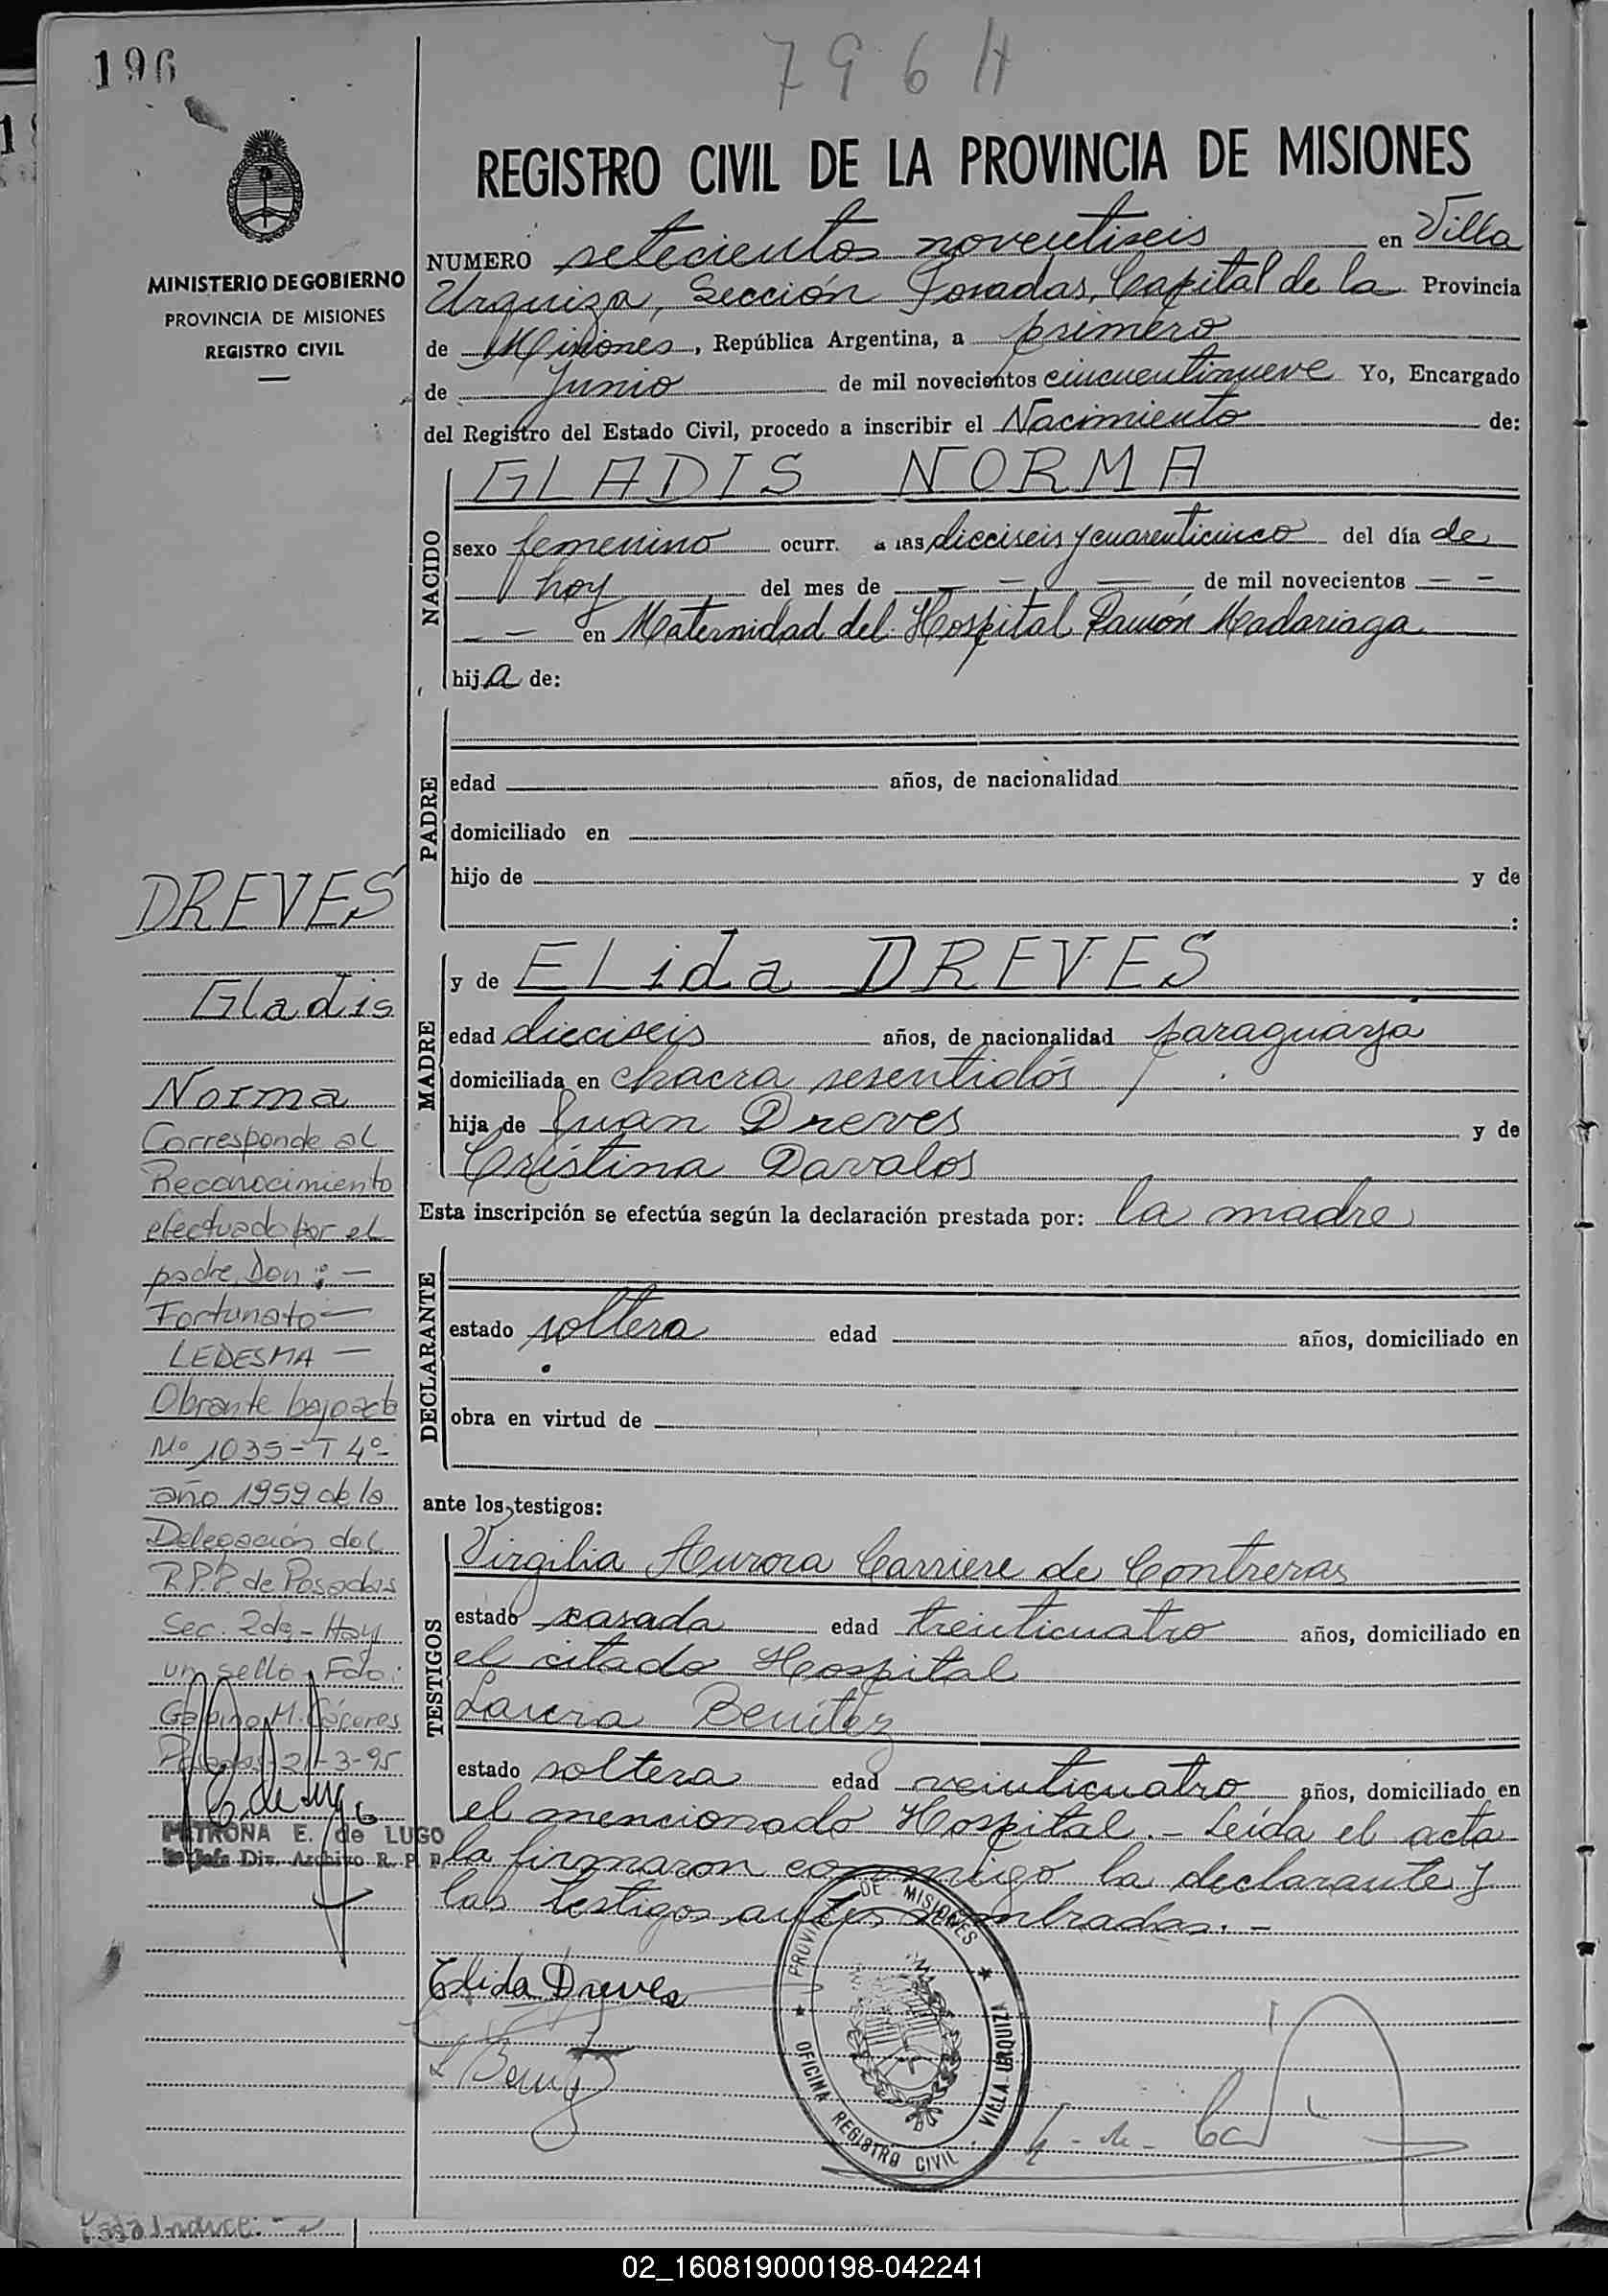 196
796 H
REGISTRO CIVIL DE LA PROVINCIA DE MISIONES
MINISTERIO DE GOBIERNO
PROVINCIA DE MISIONES
REGISTRO CIVIL
NUMERO setecientos noventiseis en Villa
Urquiza, Sección Posadas, Capital de la Provincia
de Misiones, República Argentina, a primero
de Junio de mil novecientos cincuentinueve Yo, Encargado
del Registro del Estado Civil, procedo a inscribir el Nacimiento de:
NACIDO
GLADIS NORMA
sexo femenino ocurr. a las dieciseis y cuarenticinco del día de
hoy del mes de — — de mil novecientos — —
— — en Maternidad del Hospital Ramón Madariaga
hija de:
PADRE
edad años, de nacionalidad
domiciliado en
hijo de y de
:
MADRE
y de ELida DREVES
edad dieciseis años, de nacionalidad paraguaya
domiciliada en chacra sesentidós
hija de Juan Dreves y de
Cristina Davalos
Esta inscripción se efectúa según la declaración prestada por: la madre
DECLARANTE
estado soltera edad años, domiciliado en
obra en virtud de
ante los testigos:
TESTIGOS
Virgilia Aurora Carriere de Contreras
estado casada edad treinticuatro años, domiciliado en
el citado Hospital
Laura Benitez
estado soltera edad veinticuatro años, domiciliado en
el mencionado Hospital.- Leída el acta
la firmaron conmigo la declarante y
las testigos antes nombradas.-
Elida Dreves
L Benitez
PROVINCIA DE MISIONES
OFICINA REGISTRO CIVIL
VILLA URQUIZA
DREVES
Gladis
Norma
Corresponde al
Reconocimiento
efectuado por el
padre Don: —
Fortunato —
LEDESMA —
Obrante bajo acta
Nº 1035 - T 4º-
año 1959 de la
Delegación del
R.P.P. de Posadas
Sec. 2da - Hay
un sello Fdo:
M. Cáceres
Posadas 21-3-95
PETRONA E. de LUGO
Jefa Div. Archivo R. P. P.
02_160819000198-042241